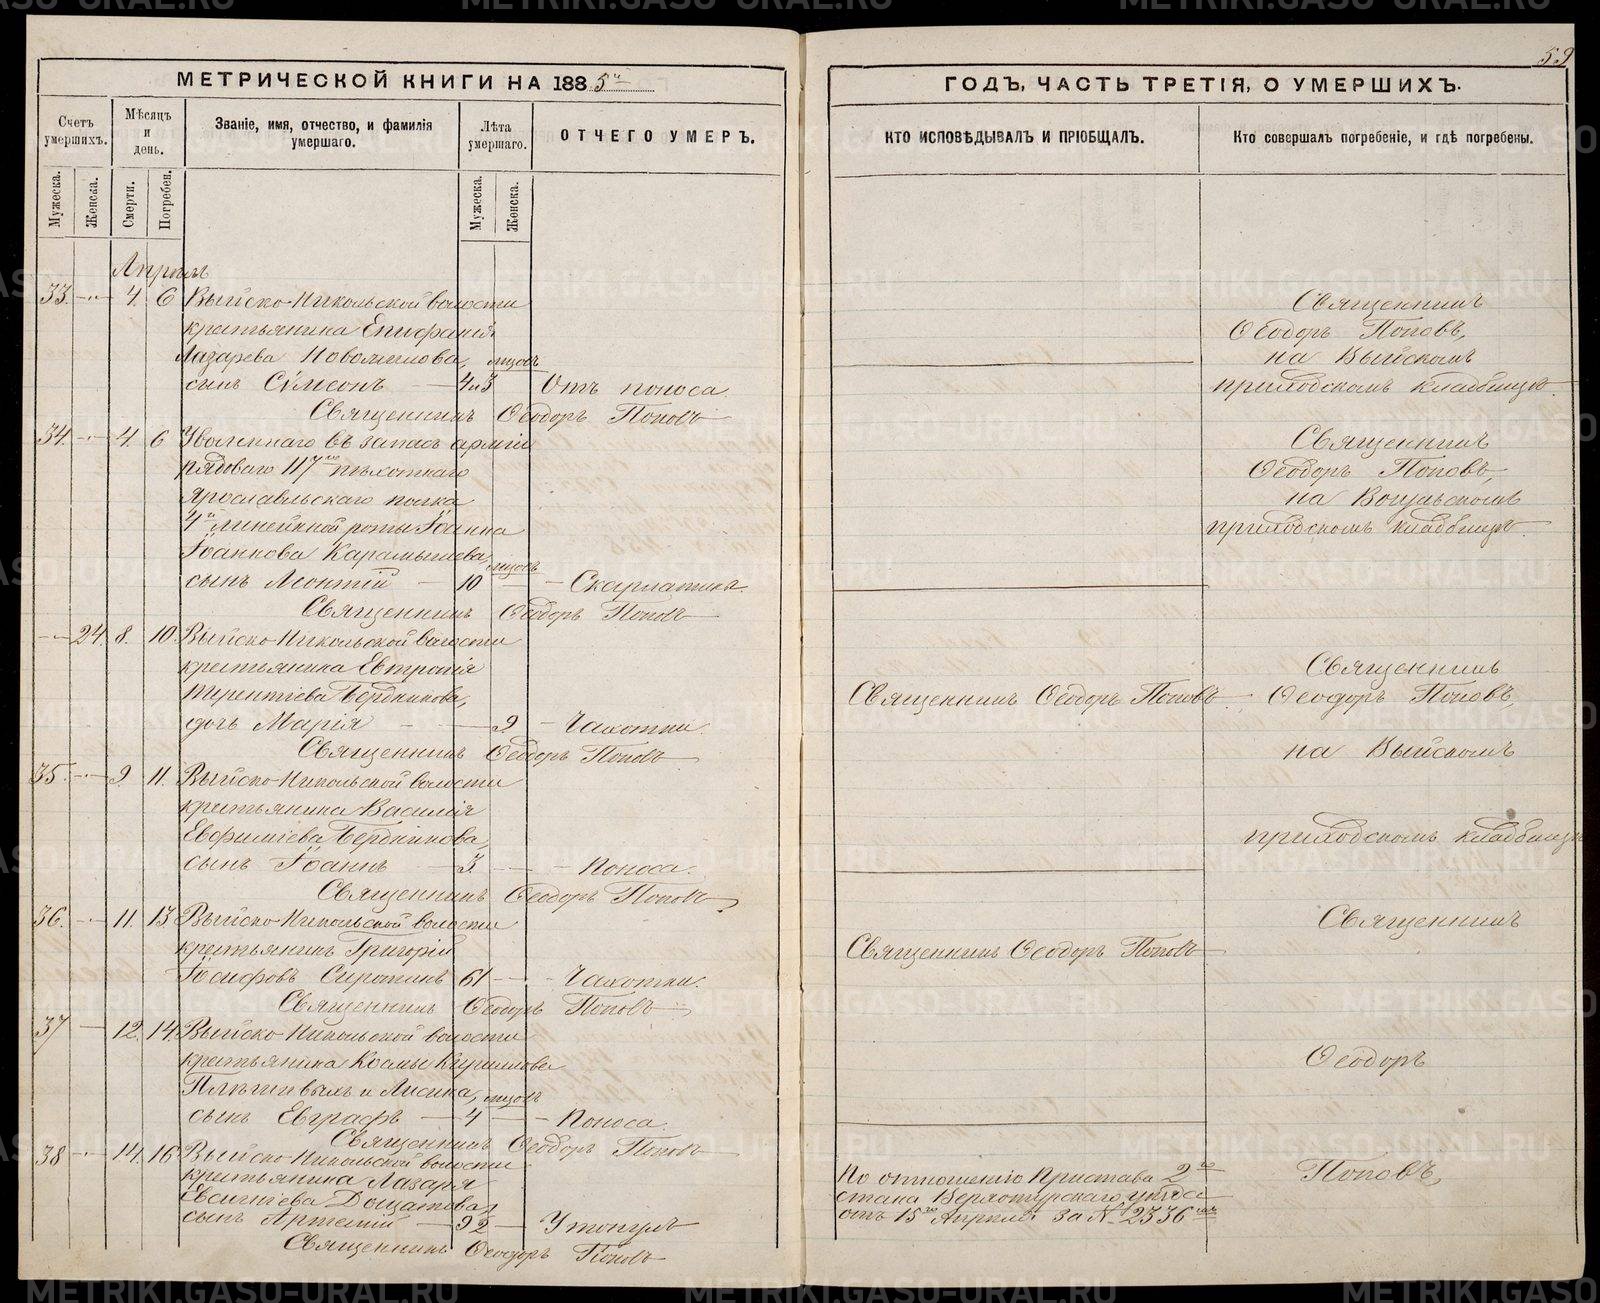 59
МЕТРИЧЕСКОЙ КНИГИ НА 1885й
ГОДЪ, ЧАСТЬ ТРЕТІЯ, О УМЕРШИХЪ.
Счетъ умершихъ.
Мѣсяцъ и день.
Званіе, имя, отчество, и фамилія умершаго.
Лѣта умершаго.
ОТЧЕГО УМЕРЪ.
КТО ИСПОВѢДЫВАЛЪ И ПРІОБЩАЛЪ.
Кто совершалъ погребеніе, и гдѣ погребены.
Мужеска.
Женска.
Смерти.
Погребен.
Мужеска.
Женска.
Апрѣль
33. 4. 6 Выйско-Никольской волости
крестьянина Епифанія
Лазарева Новоселова, мцовъ
сынъ Сѵмеонъ 4 и 3 Отъ поноса.
Священникъ Ѳеодоръ Поповъ
Священникъ
Ѳеодоръ Поповъ,
на Выйскомъ
приходскомъ кладбищѣ.
34. 4. 6 Уволеннаго въ запасъ арміи
рядоваго 117го пѣхотнаго
Ярославльскаго полка
4й линейной роты Іоанна
Іоаннова Карамышева, мцовъ
сынъ Леонтій 10 Скарлатина.
Священникъ Ѳеодоръ Поповъ
Священникъ
Ѳеодоръ Поповъ,
на Вогульскомъ
приходскомъ кладбищѣ.
24. 8. 10. Выйско-Никольской волости
крестьянина Евтропія
Терентіева Бердникова,
дочь Марія 9 Чахотки.
Священникъ Ѳеодоръ Поповъ
Священникъ Ѳеодоръ Поповъ
Священникъ
Ѳеодоръ Поповъ,
на Выйскомъ
приходскомъ кладбищѣ
35. 9. 11. Выйско-Никольской волости
крестьянина Василія
Евфиміева Бердникова,
сынъ Іоаннъ 3 Поноса.
Священникъ Ѳеодоръ Поповъ
36. 11. 13. Выйско-Никольской волости
крестьянинъ Григорій
Іосифовъ Сиротинъ 61 Чахотки.
Священникъ Ѳеодоръ Поповъ
Священникъ Ѳеодоръ Поповъ
Священникъ
37 12. 14. Выйско-Никольской волости
крестьянина Космы Кириллова
Плѣшивыхъ и Лисина, мцовъ
сынъ Евграфъ 4 Поноса.
Священникъ Ѳеодоръ Поповъ
Ѳеодоръ
38 14. 16 Выйско-Никольской волости
крестьянина Лазаря
Евсигнѣева Дощатова,
сынъ Артемій 22 Утонулъ
Священникъ Ѳеодоръ Поповъ
По отношенію Пристава 2го
стана Верхотурскаго уѣзда
отъ 15го Апрѣля за № 2336мъ
Поповъ,
METRIKI.GASO-URAL.RU